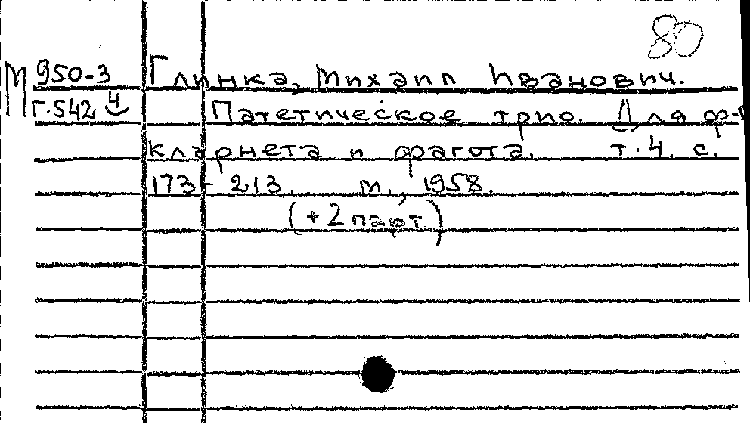 80
М 950-3 Глинка, Михаил Иванович.
Г.542 4 Патетическое трио. Для ф-
кларнета и фагота. т.4. с.
173-213. М., 1958.
(+2 парт.)